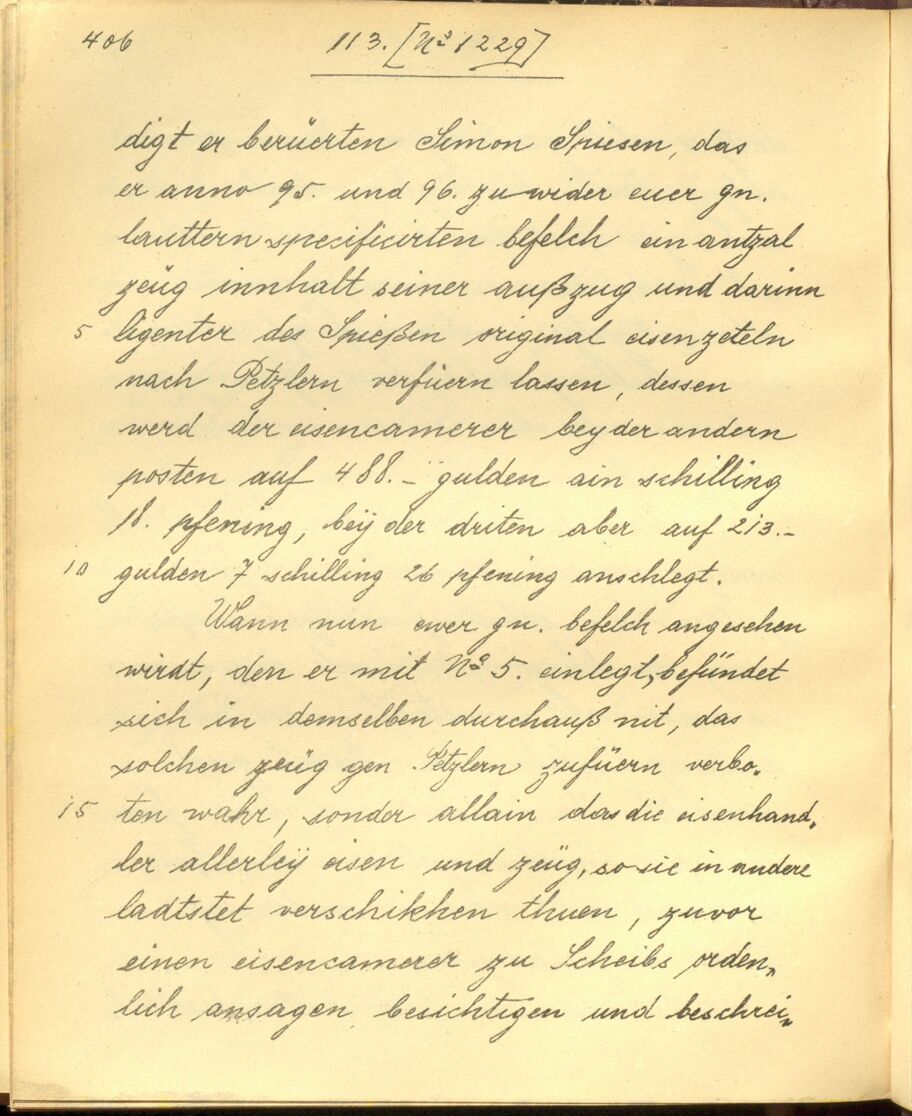 406 113. [Nº 1229]
digt er berüerten Simon Spiesen, das
er anno 95. und 96. zuwider euer gn.
lauttern specificirten befelch ein antzal
zeüg innhalt seiner außzug und darinn
5 ligenter des Spießen original eisenzeteln
nach Petzlern verfüern lassen, dessen
werd der eisencamerer bey der andern
posten auf 488.- gulden ain schilling
18. pfening, beÿ der driten aber auf 213.-
10 gulden 7 schilling 26 pfening anschlegt.
Wann nun ewer gn. befelch angesehen
wirdt, den er mit Nº 5. einlegt, befündet
sich in demselben durchauß nit, das
solchen zeüg gen Petzlern zufüern verbo„
15 ten wahr, sonder allain das die eisenhand„
ler allerleÿ eisen und zeüg, so sie in andere
ladtstet verschikhen thuen, zuvor
einen eisencamerer zu Scheibs orden„
lich ansagen, besichtigen und beschrei„